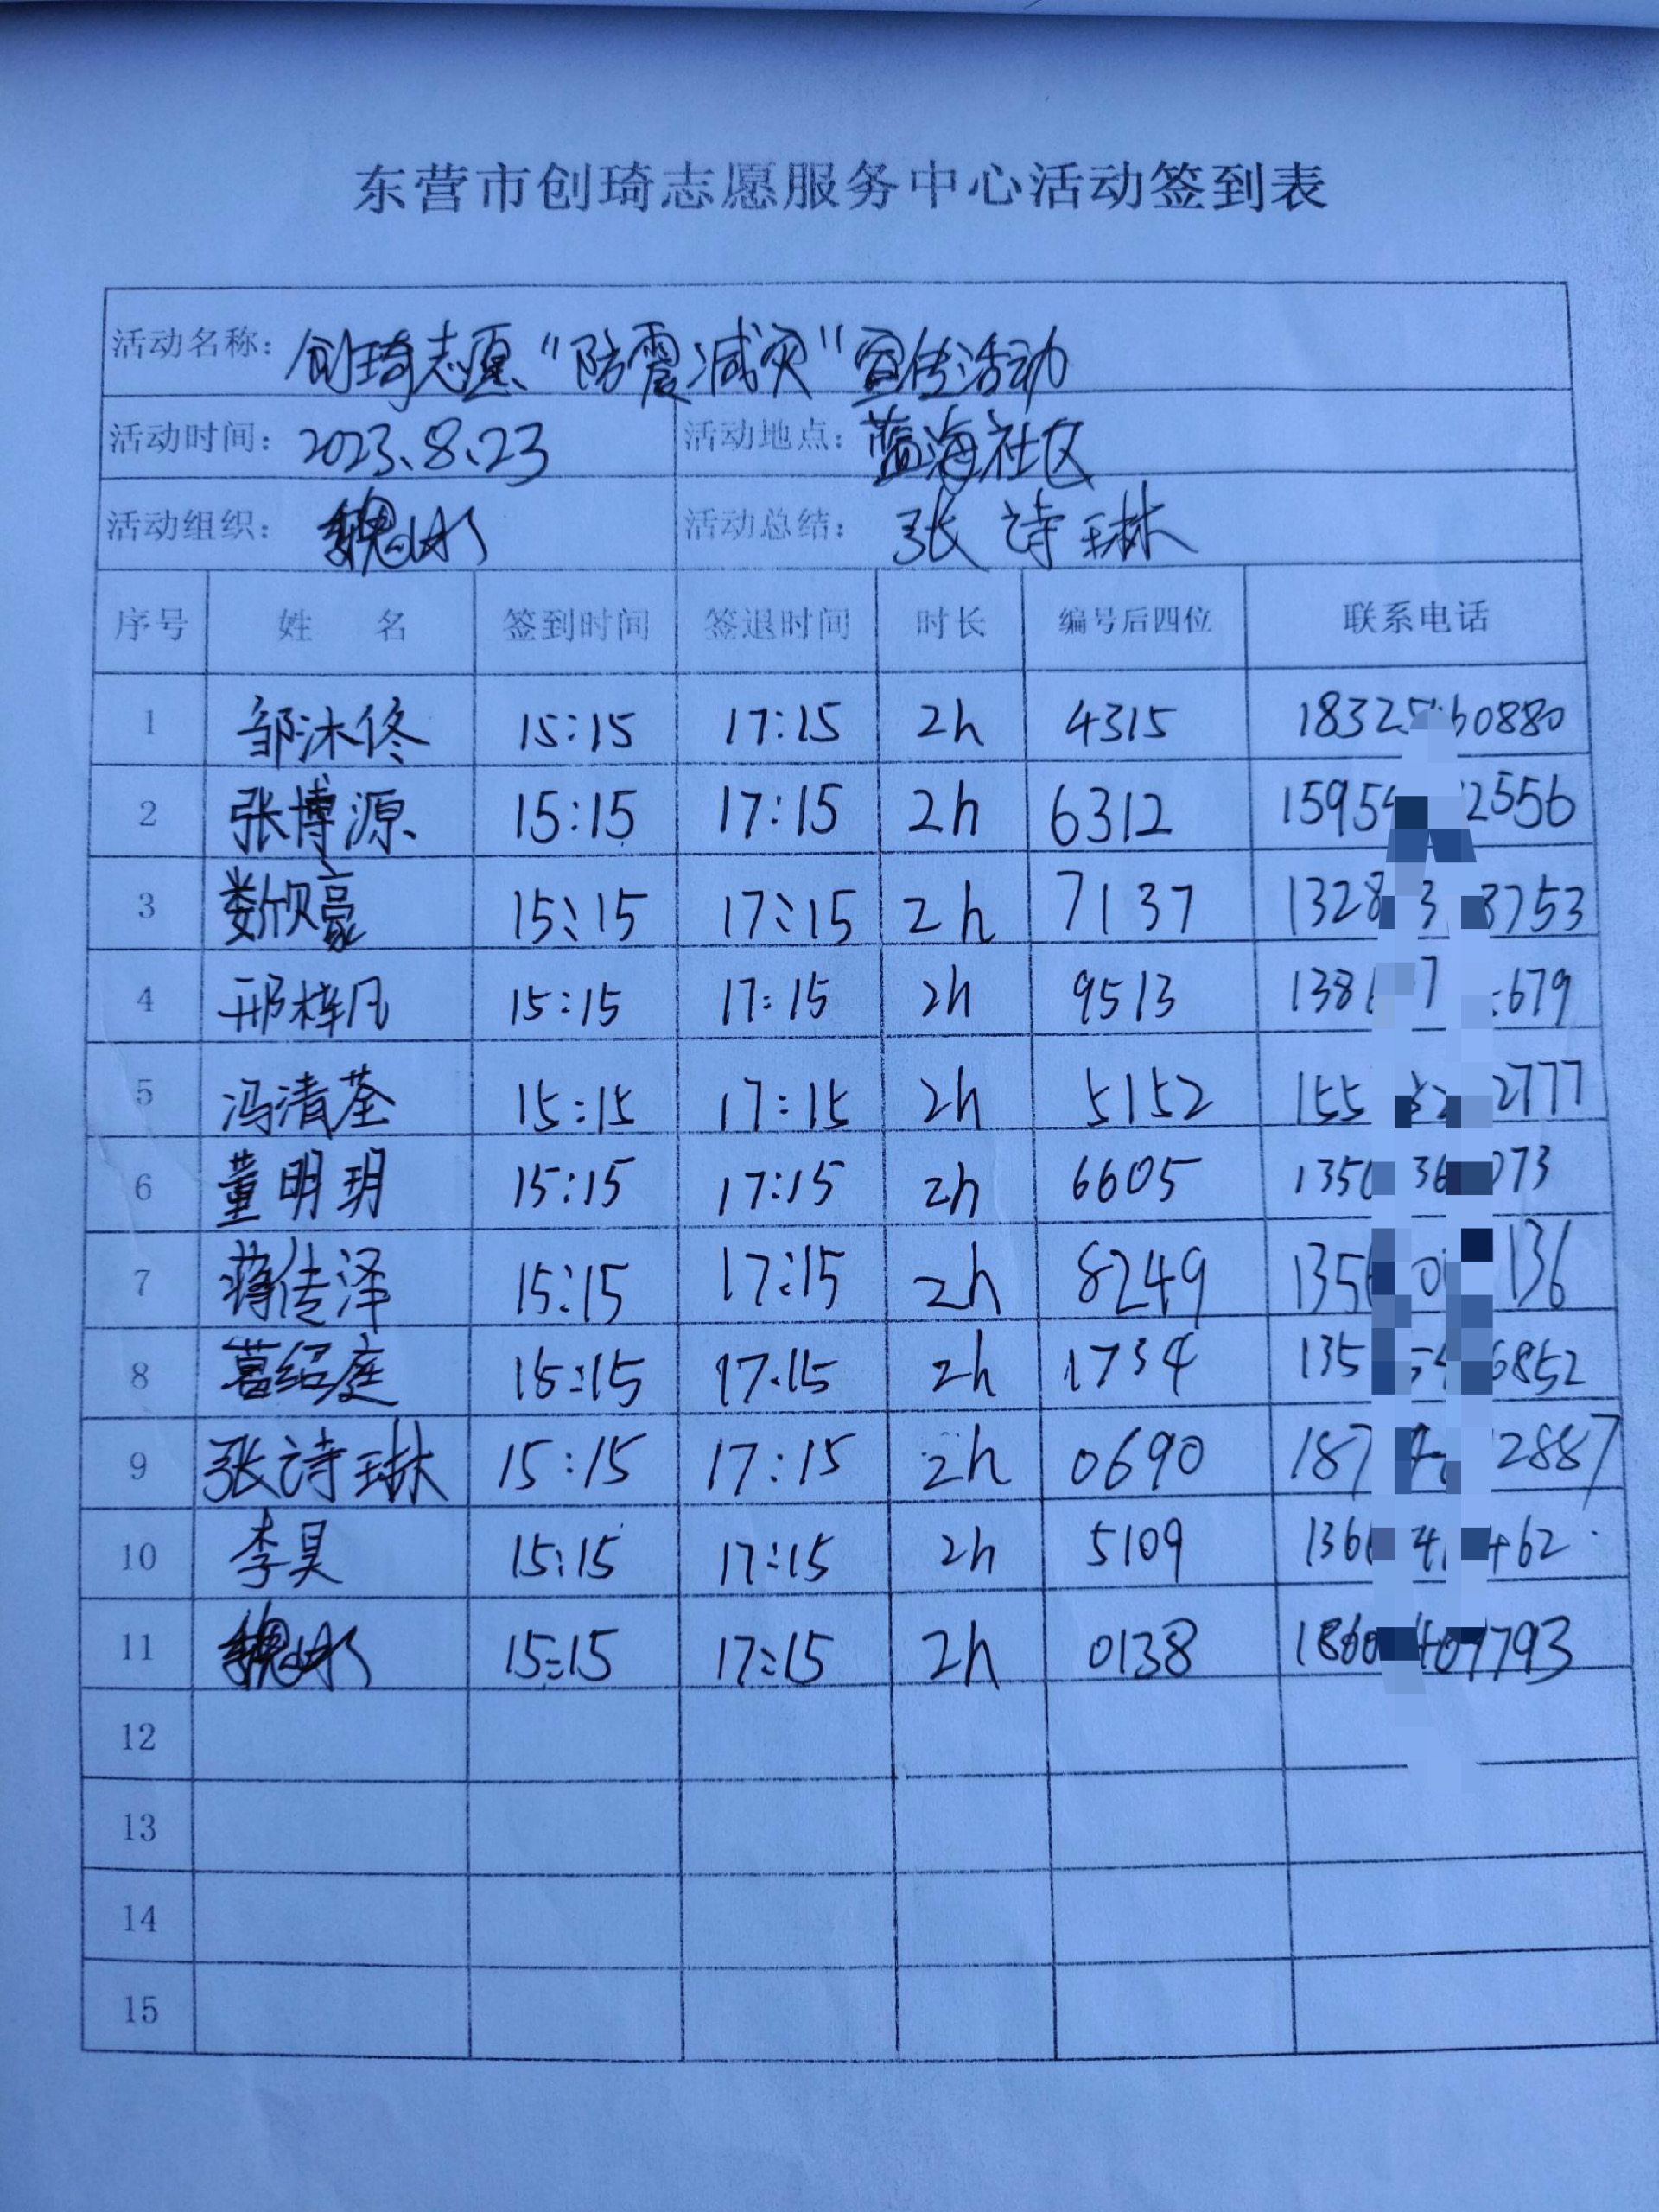 东营市创琦志愿服务中心活动签到表
活动名称: 创琦志愿“防震减灾”宣传活动
活动时间: 2023.8.23 活动地点: 蓝海社区
活动组织: 活动总结: 张诗琳
序号 姓 名 签到时间 签退时间 时长 编号后四位 联系电话
1 邹沐佟 15:15 17:15 2h 4315 1832 60880
2 张博源 15:15 17:15 2h 6312 1595 2556
3 娄欣豪 15:15 17:15 2h 7137 1328 3 3753
4 邢梓凡 15:15 17:15 2h 9513 138 7 679
5 冯清荃 15:15 17:15 2h 5152 155 2777
6 董明玥 15:15 17:15 2h 6605 135 36 073
7 蒋传泽 15:15 17:15 2h 8249 135 0 136
8 葛绍庭 15:15 17:15 2h 1734 135 6852
9 张诗琳 15:15 17:15 2h 0690 187 2887
10 李昊 15:15 17:15 2h 5109 136 4 462
11 15:15 17:15 2h 0138 1860 7793
12
13
14
15